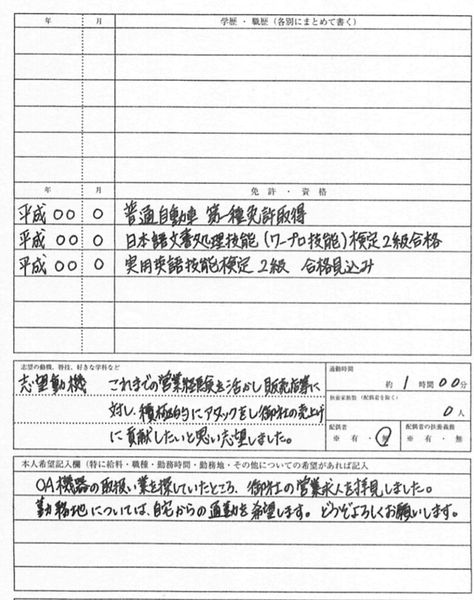 年 月 学歴・職歴（各別にまとめて書く）
年 月 免許・資格
平成 〇〇 〇 普通自動車 第一種免許取得
平成 〇〇 〇 日本語文書処理技能（ワープロ技能）検定2級合格
平成 〇〇 〇 実用英語技能検定 2級 合格見込み
志望の動機、特技、好きな学科など
志望動機 これまでの営業経験を活かし販売指導に
対し、積極的にアタックをし御社の売上げ
に貢献したいと思い志望しました。
通勤時間
約 1 時間 00 分
扶養家族数（配偶者を除く）
0 人
配偶者 配偶者の扶養義務
※ 有・無 ※ 有・無
本人希望記入欄（特に給料・職種・勤務時間・勤務地・その他についての希望があれば記入
OA機器の取扱い業を探していたところ、御社の営業求人を拝見しました。
勤務地については、自宅からの通勤を希望します。どうぞよろしくお願いします。